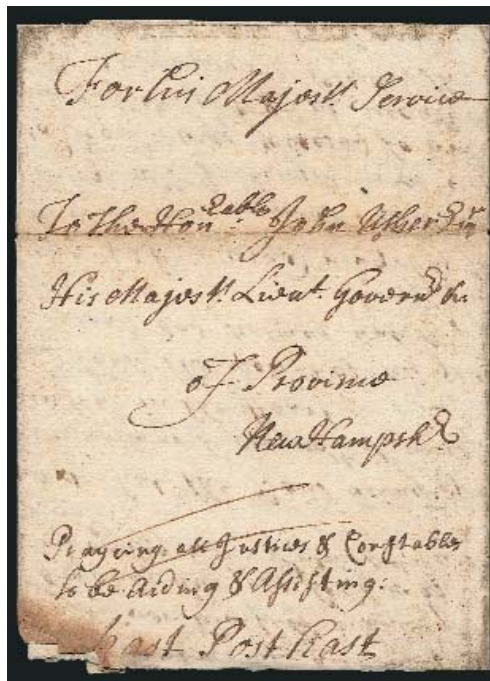 For his Majests Service
To the Honorable John Usher Esqr
His Majests Lieut. Govern &c
of Province
New Hampshr
Praying all Justices & Constables
to be Aiding & Assisting:
hast Post hast